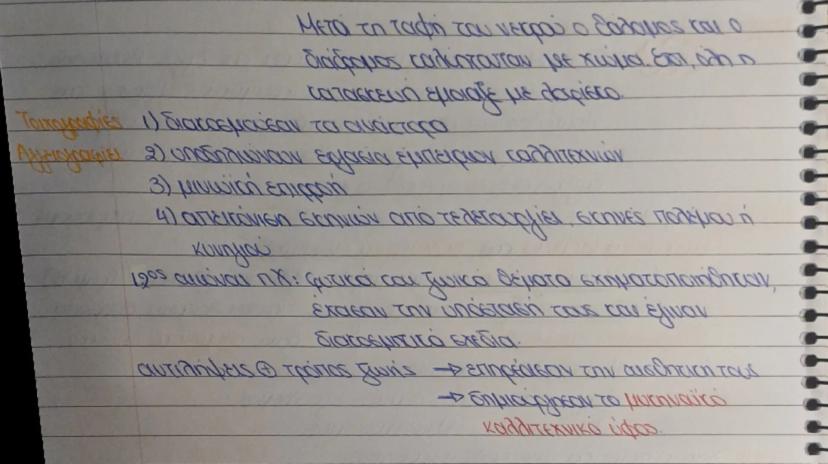 Μετά τη ταφή του νεκρού ο θάλαμος και ο
διάδρομος καλύπτονταν με χώμα. Έτσι, όλη η
κατασκευή έμοιαζε με λοφίσκο.
Τοιχογραφίες 1) διακοσμούσαν τα ανάκτορα
Αγγειογραφίες 2) υποδηλώνουν εργασία έμπειρων καλλιτεχνών
3) μινωική επιρροή
4) απεικόνιση σκηνών από τελετουργίες, σκηνές πολέμου ή
κυνηγιού
12ος αιώνας π.Χ: φυτικά και ζωικά θέματα σχηματοποιήθηκαν,
έχασαν την υπόστασή τους και έγιναν
διακοσμητικά σχέδια.
αντιλήψεις ⊕ τρόπος ζωής → επηρέασαν την αισθητική τους
→ δημιούργησαν το μυκηναϊκό
καλλιτεχνικό ύφος.